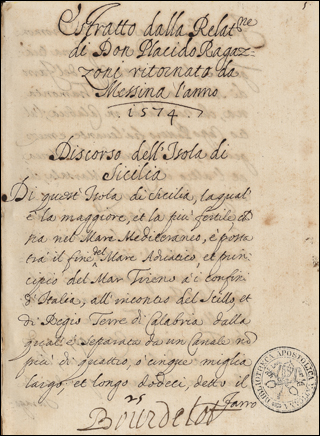 Estratto dalla Relat.ne
di Don Placido Ragaz-
zoni ritornata da
Messina l'anno
1574
Discorso dell'Isola di
Sicilia
Di quest'Isola di Sicilia, la qual
è la maggiore, et la più fertile et
sia nel Mare Mediterraneo, è posta
tra il fine del Mare Adriatico et prin-
cipio del Mar Tireno a i confini
d'Italia, all'incontro del Scillo, et
di Regio Terre di Calabria, dalla
quale è separata da un Canale nō
più di quattro, o cinque miglia
largo, et longo dodeci, detto il
Farro
25
Bourdelot